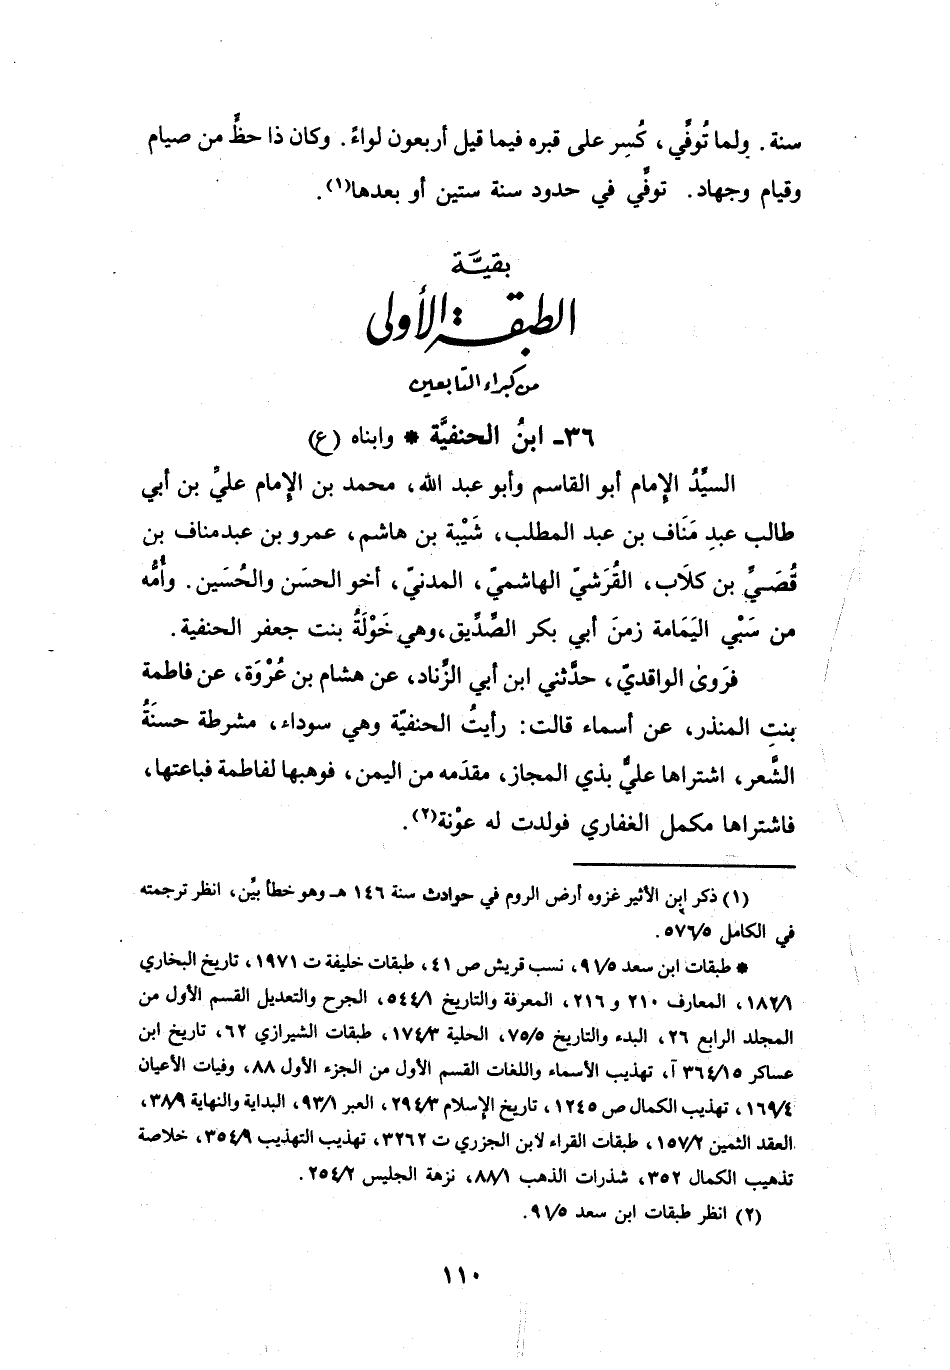 سنة . ولما تُوفِّي ، كُسِر على قبره فيما قيل أربعون لواءً . وكان ذا حظٍّ من صيام
وقيام وجهاد. توفِّي في حدود سنة ستين أو بعدها(١) .
بقيَّة
الطبقة الأولى
من كبراء التابعين
٣٦ـ ابنُ الحنفيَّة * وابناه (ع)
السيِّدُ الإمام أبو القاسم وأبو عبد الله، محمد بن الإمام عليِّ بن أبي
طالب عبدِ مَنَاف بن عبد المطلب، شَيْبة بن هاشم، عمرو بن عبدمناف بن
قُصَيِّ بن كلاَب، القُرَشيّ الهاشميّ، المدنيّ، أخو الحسَن والحُسَين. وأُمُّه
من سَبْي اليَمَامة زمنَ أبي بكر الصِّدِّيق،وهي خَوْلَةُ بنت جعفر الحنفية.
فرَوىٰ الواقديّ، حدَّثني ابن أبي الزِّناد، عن هشام بن عُرْوَة، عن فاطمة
بنتِ المنذر، عن أسماء قالت: رأيتُ الحنفيّة وهي سوداء، مشرطة حسنَةُ
الشَّعر، اشتراها عليٌّ بذي المجاز، مقدَمه من اليمن، فوهبها لفاطمة فباعتها،
فاشتراها مكمل الغفاري فولدت له عوْنة(٢).
(١) ذكر ابن الأثير غزوه أرض الروم في حوادث سنة ١٤٦ هـ وهو خطأ بيِّن، انظر ترجمته
في الكامل ٥٧٦/٥ .
* طبقات ابن سعد ٩١/٥، نسب قريش ص ٤١، طبقات خليفة ت ١٩٧١، تاريخ البخاري
١٨٢/١، المعارف ٢١٠ و ٢١٦، المعرفة والتاريخ ٥٤٤/١، الجرح والتعديل القسم الأول من
المجلد الرابع ٢٦، البدء والتاريخ ٧٥/٥، الحلية ١٧٤/٣، طبقات الشيرازي ٦٢، تاريخ ابن
عساكر ٣٦٤/١٥ آ، تهذيب الأسماء واللغات القسم الأول من الجزء الأول ٨٨، وفيات الأعيان
١٦٩/٤، تهذيب الكمال ص ١٢٤٥، تاريخ الإسلام ٢٩٤/٣، العبر ٩٣/١، البداية والنهاية ٣٨/٩،
العقد الثمين ١٥٧/٢، طبقات القراء لابن الجزري ت ٣٢٦٢، تهذيب التهذيب ٣٥٤/٩، خلاصة
تذهيب الكمال ٣٥٢، شذرات الذهب ٨٨/١، نزهة الجليس ٢٥٤/٢.
(٢) انظر طبقات ابن سعد ٩١/٥.
١١٠